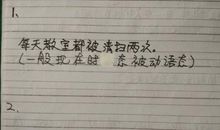 1、
每天教室都被清扫两次。
(一般现在时 态被动语态)
2、